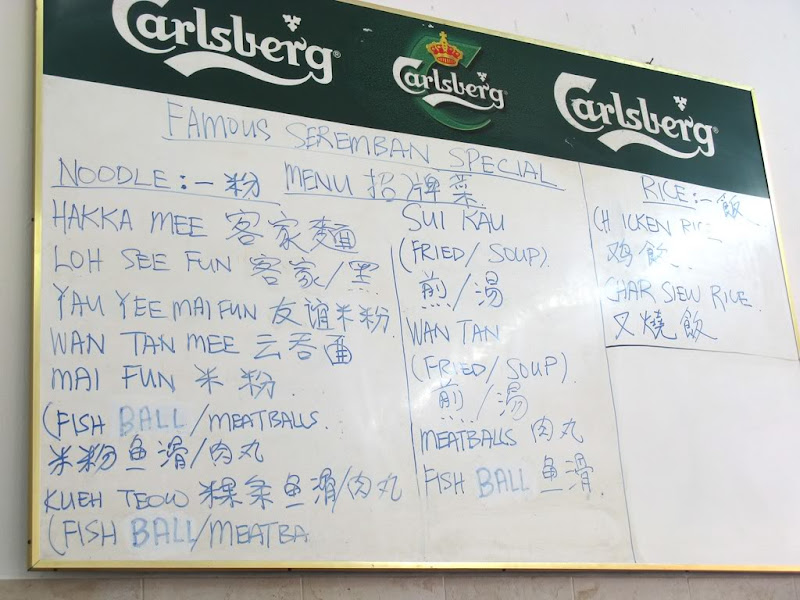 Carlsberg
Carlsberg
Carlsberg
FAMOUS SEREMBAN SPECIAL
NOODLE:- 粉 MENU 招牌菜
HAKKA MEE 客家麵
LOH SEE FUN 客家/黑
YAU YEE MAI FUN 友谊米粉
WAN TAN MEE 云吞面
MAI FUN 米粉
(FISH BALL/MEATBALLS.
米粉鱼滑/肉丸
KUEH TEOW 粿条鱼滑/肉丸
(FISH BALL/MEATBA
SUI KAU
(FRIED/SOUP).
煎/湯
WAN TAN
(FRIED/SOUP).
煎/湯
MEATBALLS 肉丸
FISH BALL 鱼滑.
RICE:- 飯
CHICKEN RICE
鸡飯
CHAR SIEW RICE
叉燒飯